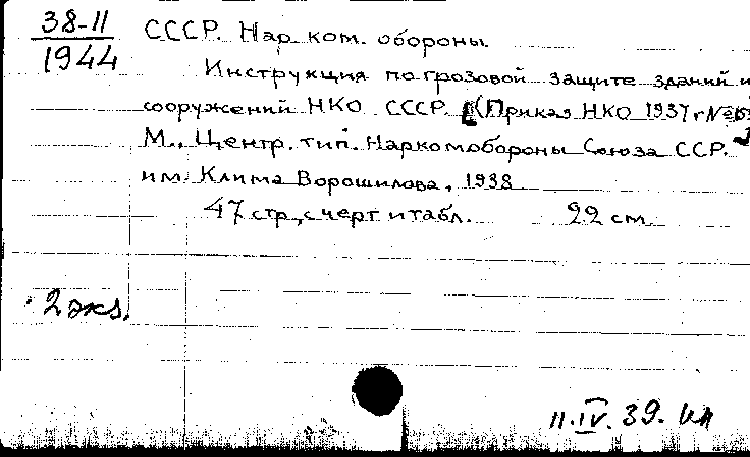 38-II
1944
СССР. Нар. ком. обороны.
Инструкция по грозовой защите зданий и
сооружений НКО СССР. (Приказ НКО 1937 г №
М., Центр. тип. Наркомобороны Союза ССР.
им. Клима Ворошилова, 1938.
47 стр., с черт и табл. 22 см.
2 экз.
11.IV.39.